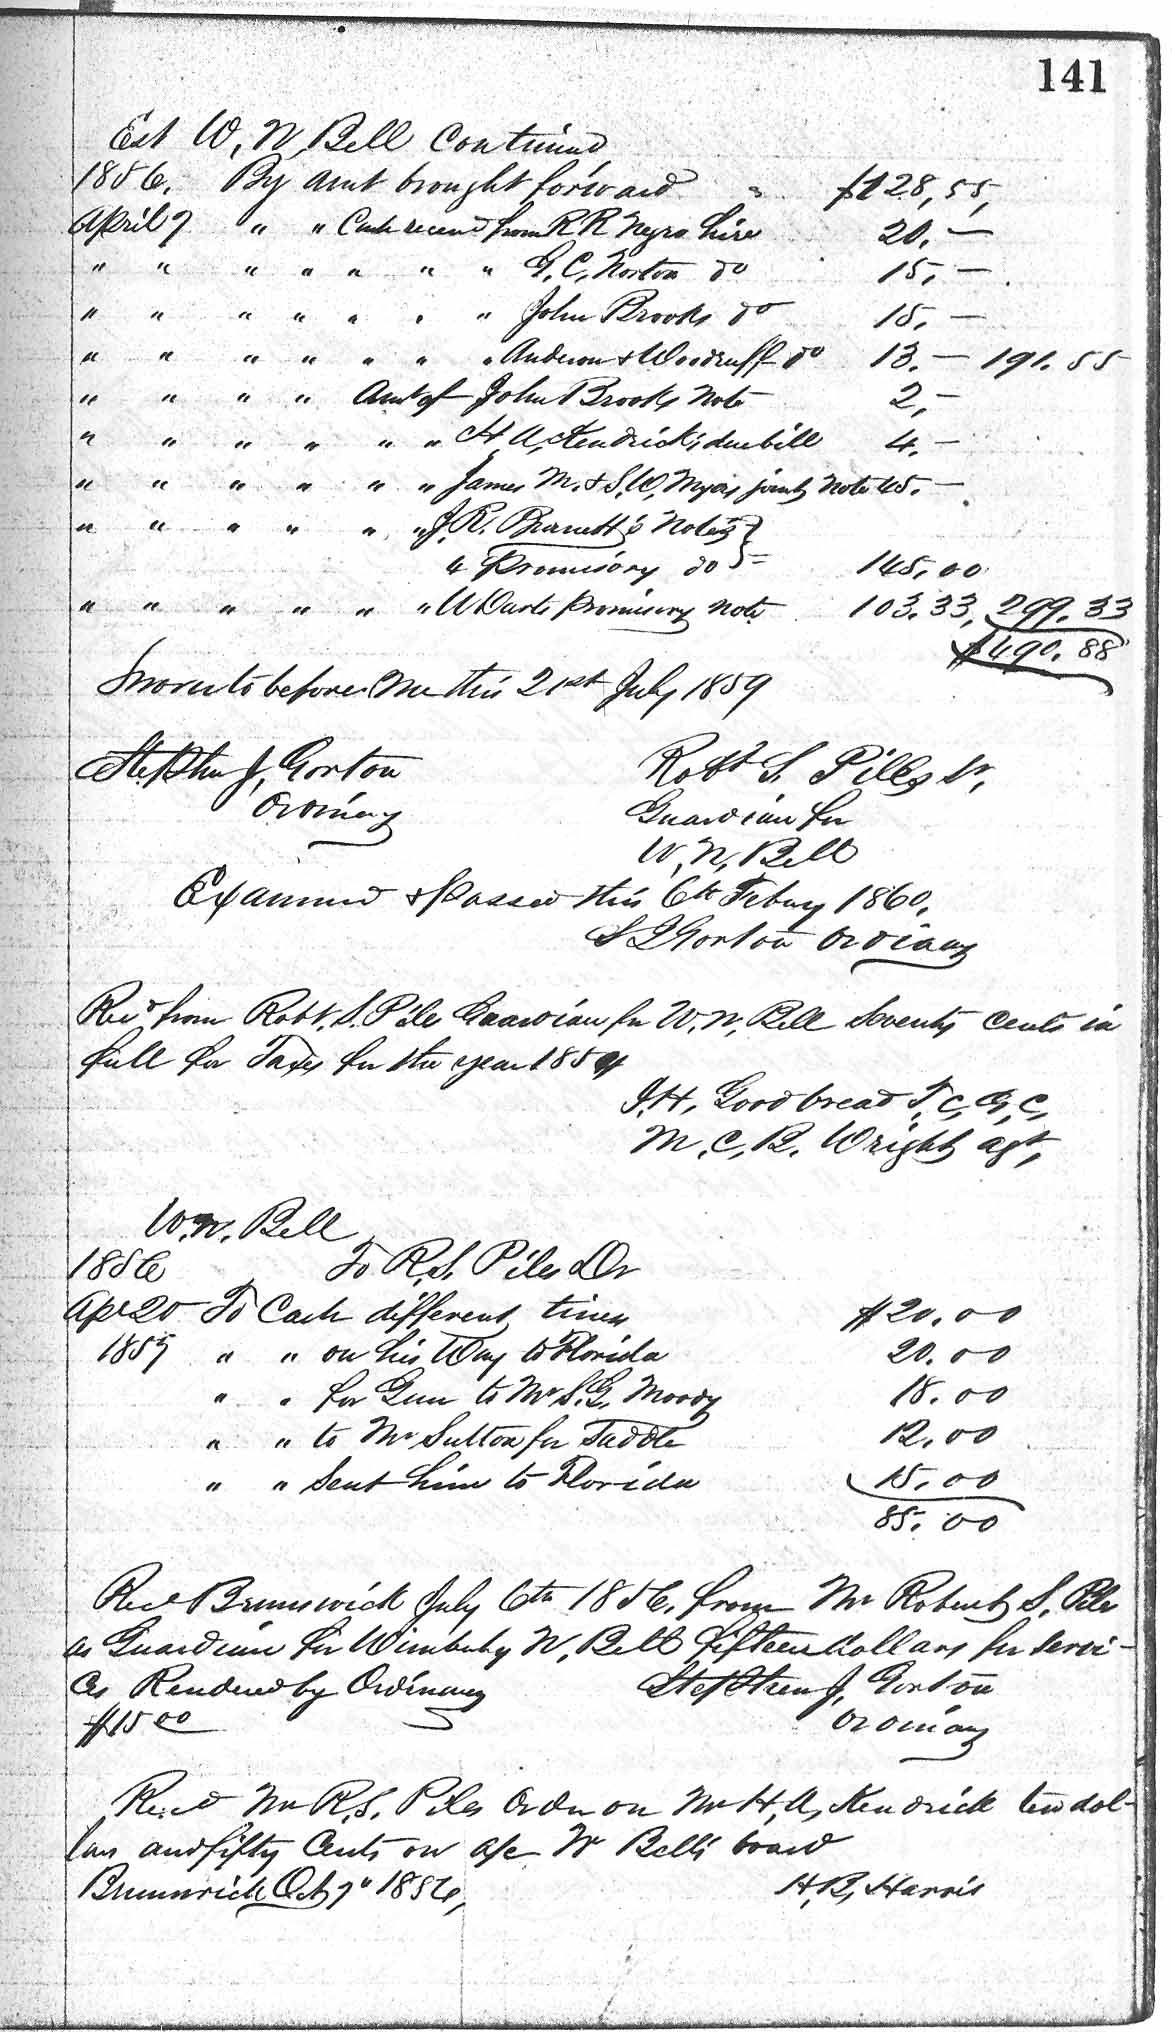 141
Est W. N. Bell Continued
1856. By amt brought forward " $128,55,
April 7 " " Cash receivd from R R Negro hire 20.—
" " " " " " " G. C. Norton do 15.—
" " " " " " " John Brooks do 15.—
" " " " " " " Anderson & Woodruff do 13.— 191.55
" " " " Amt of John Brooks Note 2,—
" " " " " " H. A. Kendrick's due bill 4.—
" " " " " " James M. & S. W. Myers joint Note 45.—
" " " " " " J. R. Barnett's Notes }
4 Promisory do } 145.00
" " " " " " W Darts Promisory note 103.33, 299.33
$490.88
Sworn to before me this 21st July 1859
Stephen J, Gorton Robt S. Piles Sr,
Ordinary Guardian for
W, N, Bell
Examined & Passed this 6th Febury 1860.
S J Gorton Ordinary
Recd from Robt. S. Piles Guardian for W. N, Bell Seventy Cents in
full for Taxes for the year 1859
J. H, Goodbread T, C, G, C,
M. C, R. Wright agt,
W. N. Bell
1856 To R. S. Piles Dr
Apl 20 To Cash different times $20.00
1857 " " on his Way to Florida 20.00
" " for Gun to Mr S. G. Moody 18.00
" " to Mr Sutton for Saddle 12.00
" " Sent him to Florida 15.00
85.00
Recd Brunswick July 6th 1856. from Mr Robert S. Piles
as Guardian for Wimberly N, Bell fifteen dollars for Servi-
ces Rendered by Ordinary Stephen J, Gorton
$15 00 Ordinary
Recd Mr R, S. Piles Order on Mr H, A, Kendrick ten dol-
lars and fifty Cents on a/c W Bell's board
Brunswick Oct 7th 1856, H, B, Harris